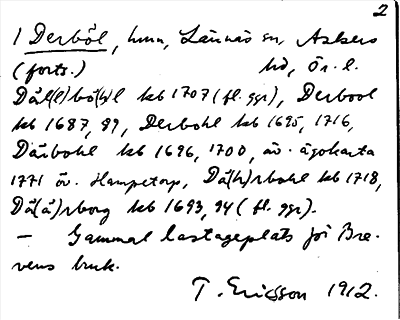 2
1 Derböl, hmn, Lännäs sn, Askers
(forts.) hd, Ör. l.
Däl(l)bå(h)l kb 1707 (fl. ggr), Derbool
kb 1687, 89, Derbohl kb 1695, 1716,
Därbohl kb 1696, 1700, äv. ägokarta
1771 öv. Hampetorp, Dä(h)rbohl kb 1718,
Dä(ä)rborg kb 1693, 94 (fl. ggr).
— Gammal lastageplats för Bre-
vens bruk.
T. Ericsson 1912.